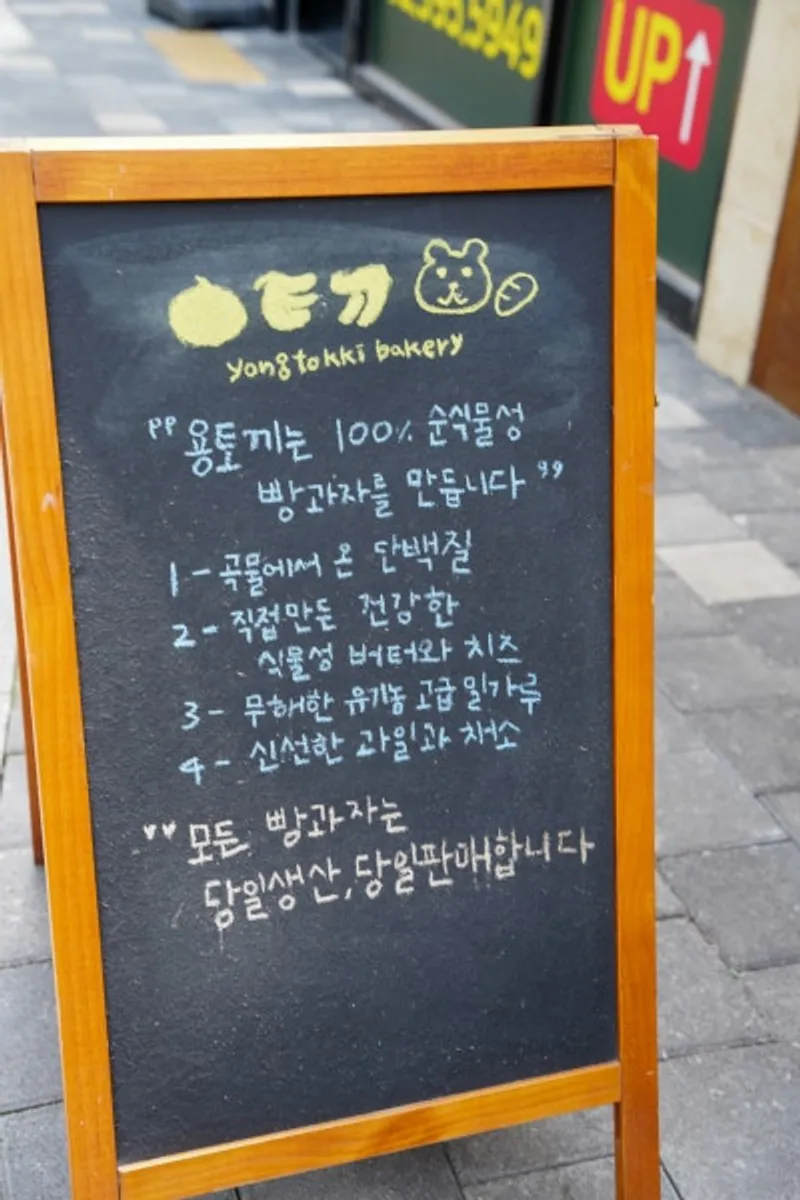 UP↑
ㅇㅌㄲ
yongtokki bakery
"용토끼는 100% 순식물성
빵과자를 만듭니다"
1 - 곡물에서 온 단백질
2 - 직접만든 건강한
식물성 버터와 치즈
3 - 무해한 유기농 고급밀가루
4 - 신선한 과일과 채소
♥♥ 모든 빵과자는
당일생산, 당일판매합니다